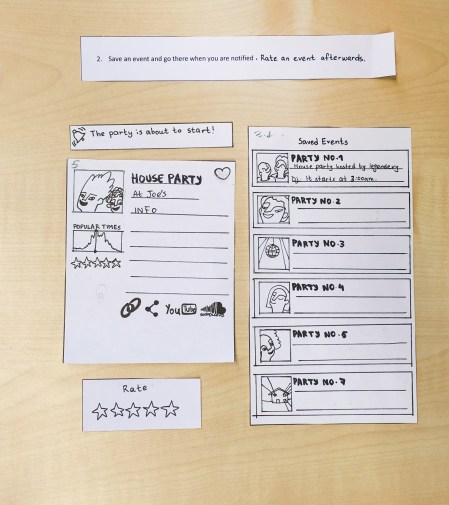 2. Save an event and go there when you are notified. Rate an event afterwards.
The party is about to start!
5
HOUSE PARTY
At Joe's
INFO
POPULAR TIMES
You Tube
SOUNDCLOUD
Rate
Saved Events
PARTY NO.1
House party hosted by legendary
Dj. It starts at 3:00am.
PARTY NO.2
PARTY NO.3
PARTY NO.4
PARTY NO.
PARTY NO.7